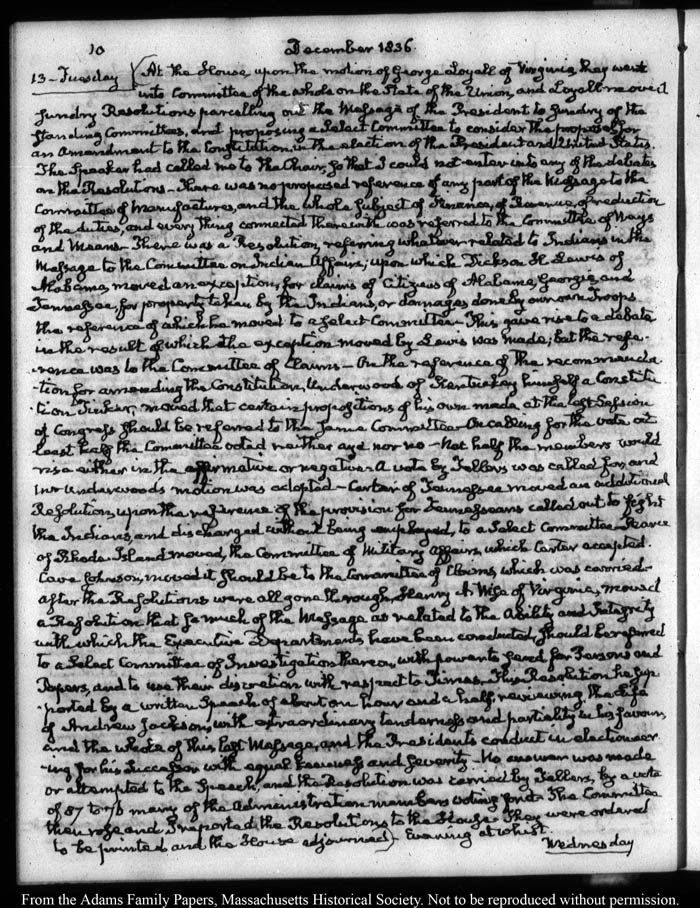 10
December 1836.
13 - Tuesday At the House, upon the motion of George Loyall of Virginia they went
into Committee of the whole on the State of the Union, and Loyall moved
sundry Resolutions parcelling out the Message of the President to sundry of the
standing Committees, and proposing a Select Committee to consider the proposal for
an Amendment to the Constitution, in the election of the President and United States.
The Speaker had called me to the Chair, so that I could not enter into any of the debates
on the Resolutions - There was no proposed reference of any part of the Message to the
Committee of Manufactures, and the whole subject of Finance, of Revenue, of reduction
of the duties, and every thing connected therewith was referred to the Committee of Ways
and Means - There was a Resolution, referring whatever related to Indians in the
Message to the Committee on Indian Affairs; upon which Dickson H. Lewis of
Alabama moved an exception, for claims of Citizens of Alabama, Georgia, and
Tennessee, for property taken by the Indians, or damages done by our own Troops
the reference of which he moved to a Select Committee - This gave rise to a debate
in the result of which the exception moved by Lewis was made; but the refe-
-rence was to the Committee of Claims - On the reference of the recommenda
-tion for amending the Constitution, Underwood of Kentucky himself a Constitu
-tion Tinker, moved that certain propositions of his own made at the last Session
of Congress should be referred to the same Committee. On calling for the vote at
least half the Committee voted neither aye nor no - Not half the members would
rise either in the affirmative or negative. A vote by Tellers was called for, and
Underwood's motion was adopted - Carter of Tennessee moved an additional
Resolution, upon the reference of the provision for Tennesseans called out to fight
the Indians, and discharged without being employed, to a Select Committee - Pearce
of Rhode-Island moved, the Committee of Military Affairs, which Carter accepted.
Cave Johnson, moved it should be to the Committee of Claims, which was carried -
After the Resolutions were all gone through, Henry A Wise of Virginia, moved
a Resolution that so much of the Message as related to the Ability and Integrity
with which the Executive Departments have been conducted, should be referred
to a Select Committee of Investigation thereon, with power to send for Persons and
Papers, and to use their discretion with respect to Times. This Resolution he sup
-ported by a written Speech of about an hour and a half, reviewing the Life
of Andrew Jackson, with extraordinary tenderness and partiality in his favour,
and the whole of this last Message, and the President's conduct in electioneer
-ing for his Successor with equal keenness and severity - No answer was made
or attempted to the Speech, and the Resolution was carried by Tellers, by a vote
of 87 to 76 many of the Administration members voting for it - The Committee
then rose and I reported the Resolutions to the House. They were ordered
to be printed and the House adjourned - Evening at whist.
Wednesday
From the Adams Family Papers, Massachusetts Historical Society. Not to be reproduced without permission.